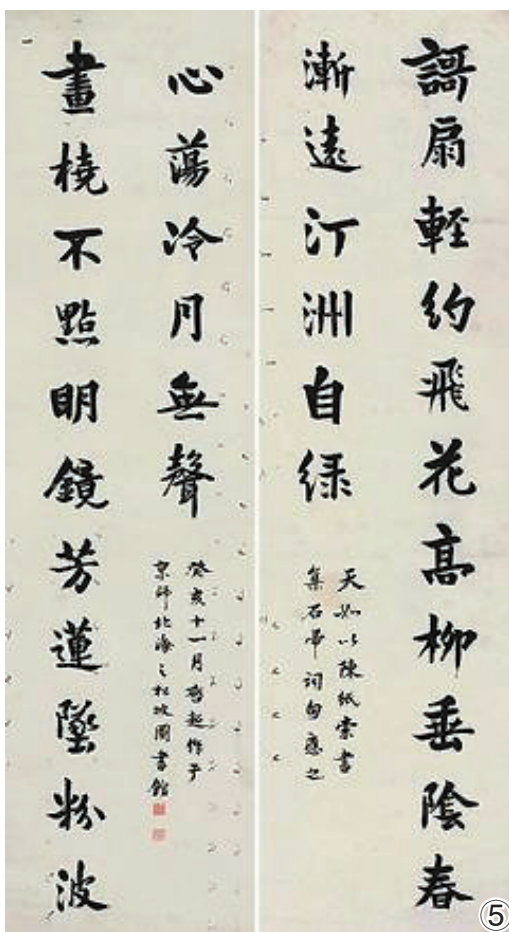 謌扇輕約飛花高柳垂陰春
漸遠汀洲自緑
天如以陳紙索書
集石帚詞句應之
畫橈不點明鏡芳蓮墜粉波
心蕩冷月無聲
癸亥十一月啓超作于
京師北海之松坡圖書館
⑤